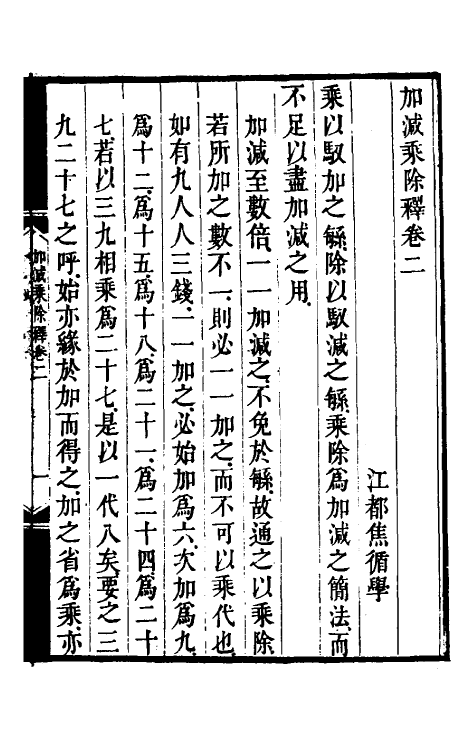 加減乘除釋卷二
江都焦循學
乘以馭加之緐除以馭減之緐乘除爲加減之簡法而
不足以盡加減之用
加減至數倍一一加減之不免於緐故通之以乘除
若所加之數不一則必一一加之而不可以乘代也
如有九人人三錢一一加之必始加爲六次加爲九
爲十二爲十五爲十八爲二十一爲二十四爲二十
七若以三九相乘爲二十七是以一代八矣要之三
九二十七之呼始亦緣於加而得之加之省爲乘亦
加減乘除釋卷二
一